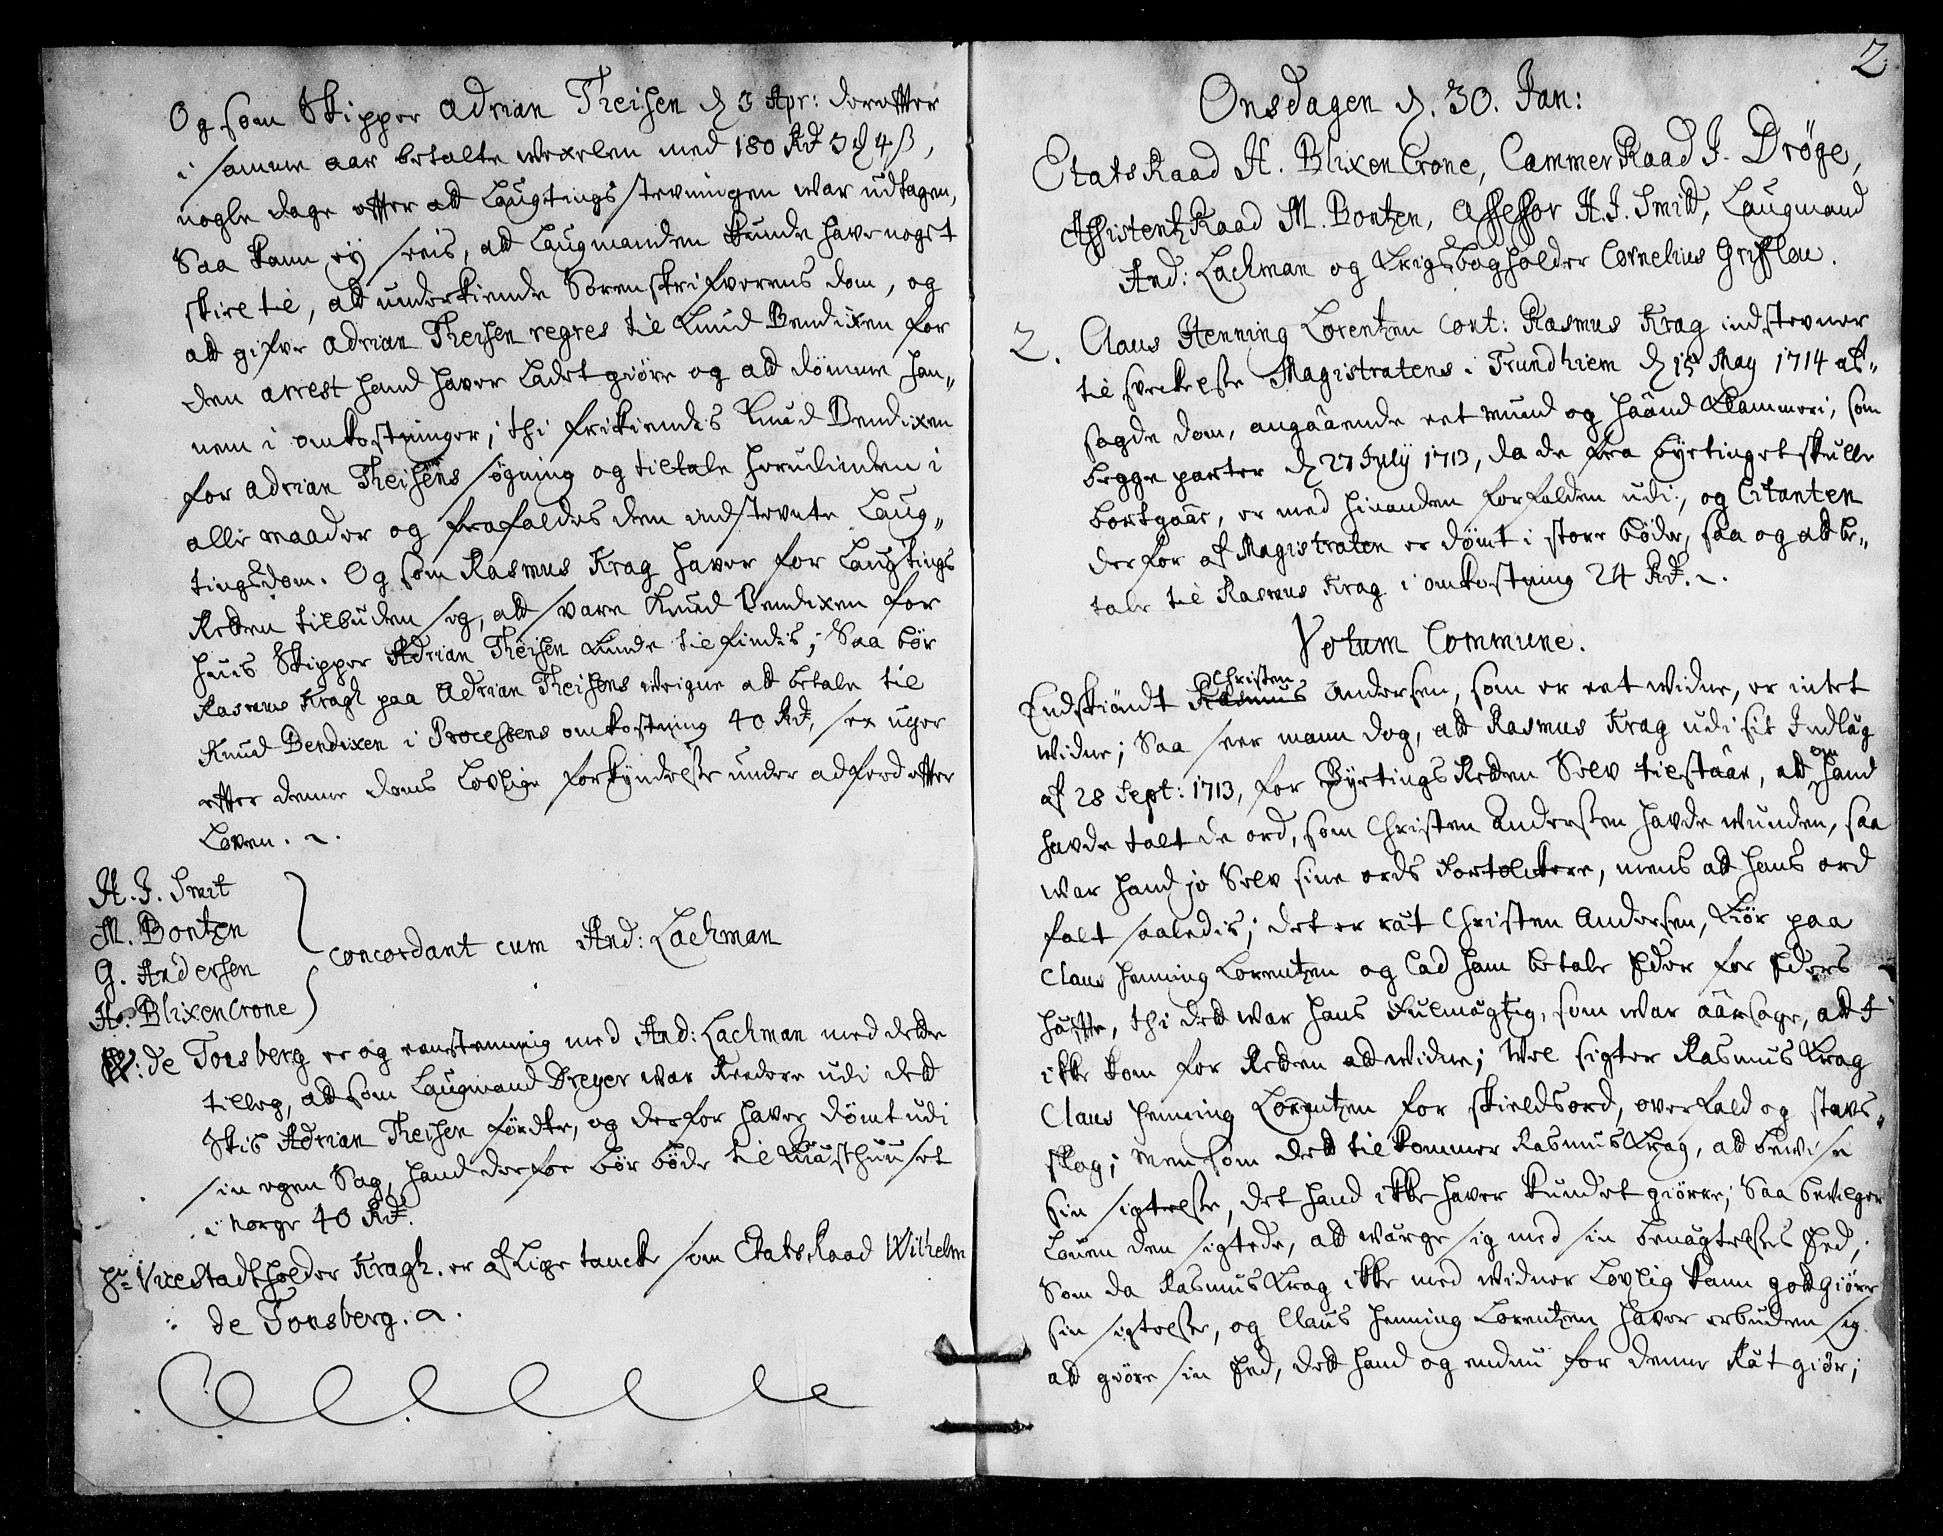 Og som Skipper Adrian Theisen d. 3 Apr: derefter
i samme aar betalte wexelen med 180 Rd 3 # 4 ß,
nogle dage efter att Laugtings stevningen war udtagen,
Saa kann ey sees, att Laugmanden kunde have noget
skiel til, att underkiende Sorenskrifverens dom, og
att gifve Adrian Theisen regres til Knud Bendixen for
den arrest hand haver ladet giøre og att dømme han„
nem i omkostninger; thi frikiendis Knud Bendixen
for Adrian Theisens søgning og tiltale herudinden i
alle maader og frafaldes den indstevnte Laug„
tingsdom. Og som Rasmus Krag haver for Laugtings
Retten tilbuden sig, att svare Knud Bendixen for
hvis Skipper Adrian Theisen kunde tilfindis; Saa bør
Rasmus Kragh paa Adrian Theisens weigne att betale til
Knud Bendixen i Processens omkostning 40 Rd, sex uger
efter denne doms Lovlige forkyndelse under adferd efter
Loven. ~.
H. J. Smit
M. Bontzen
G. Andersen
H. BlixenCrone
concordant cum And: Lachman
W: de Tonsberg er og eenstemmig med And: Lachman med dette
tilleg, att som Laugmand Dreyer war Reedere udi dett
Skib Adrian Theisen førdte, og derfor haver dømt udi
sin egen Sag, hand derfor bør bøde til Quæsthuuset
i Norge 40 Rd.
Hr Vicestadtholder Kragh. er af Lige tancke som EtatsRaad Wilhelm
de Tonsberg. ~.
2
Onsdagen d. 30. Jan:
EtatsRaad H. BlixenCrone, CammerRaad J. Dröge,
AssistentzRaad M. Bontzen, Assessor H. J. Smitt, Laugmand
And: Lachman og Krigsbogholder Cornelius Grifflou.
2. Claus Henning Lorentzen Cont: Rasmus Krag indstevner
til svekelse Magistratens i Trundhiem d 15 May 1714 af„
sagde dom, angaaende eet mund og haand Klammeri, som
begge parter d 27 July 1713, da de fra Byetinget skulle
bortgaae, er med hinanden forfalden udi, og Citanten
derfor af Magistraten er dømt i store bøder, saa og att be„
tale til Rasmus Krag i omkostning 24 Rd. ~.
Votum Commune.
Endskiöndt Rasmus Christen Andersen, som er eet widne, er intet
widne; Saa seer mann dog, att Rasmus Krag udi sit Indlæg
af 28 Sept: 1713, for ByetingsRetten Selv tilstaar, att om hand
havde talt de ord, som Christen Andersen havde wunden, saa
war hand jo Selv sine ords Fortolkere, mens att hans ord
falt saaledis; det er ræt Christen Andersen, Kiør paa
Claus Henning Lorentzen og lad ham betale Eder for Eders
Hæfte, thi dett war hans Fulmægtig, som war aarsage, att I
ikke kom for Retten att widne; Wel sigter Rasmus Krag
Claus Henning Lorentzen for skieldsord, overfald og stavs„
slag; men som dett tilkommer Rasmus Krag, att bewise
sin sigtelse, det hand ikke haver kundet giørre; Saa bevilger
Loven den sigtede, att wærge sig med sin benægtelses Eed;
Som da Rasmus Krag ikke med widner Lovlig kann godtgiøre
sin sigtelse, og Claus Henning Lorentzen haver erbuden sig
att giøre sin Eed, dett hand og endnu for denne Ræt giør;